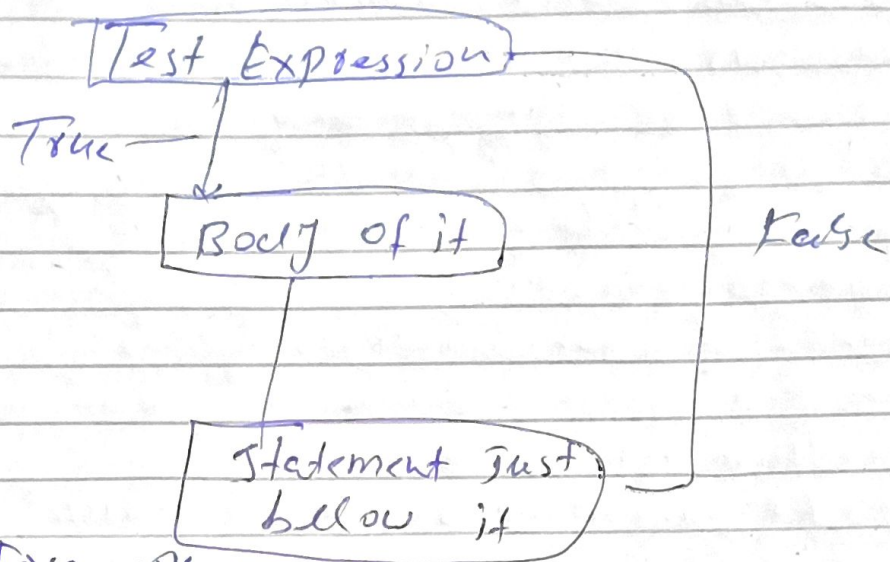 Test Expression
True
Body of it
False
Statement Just
bellow it